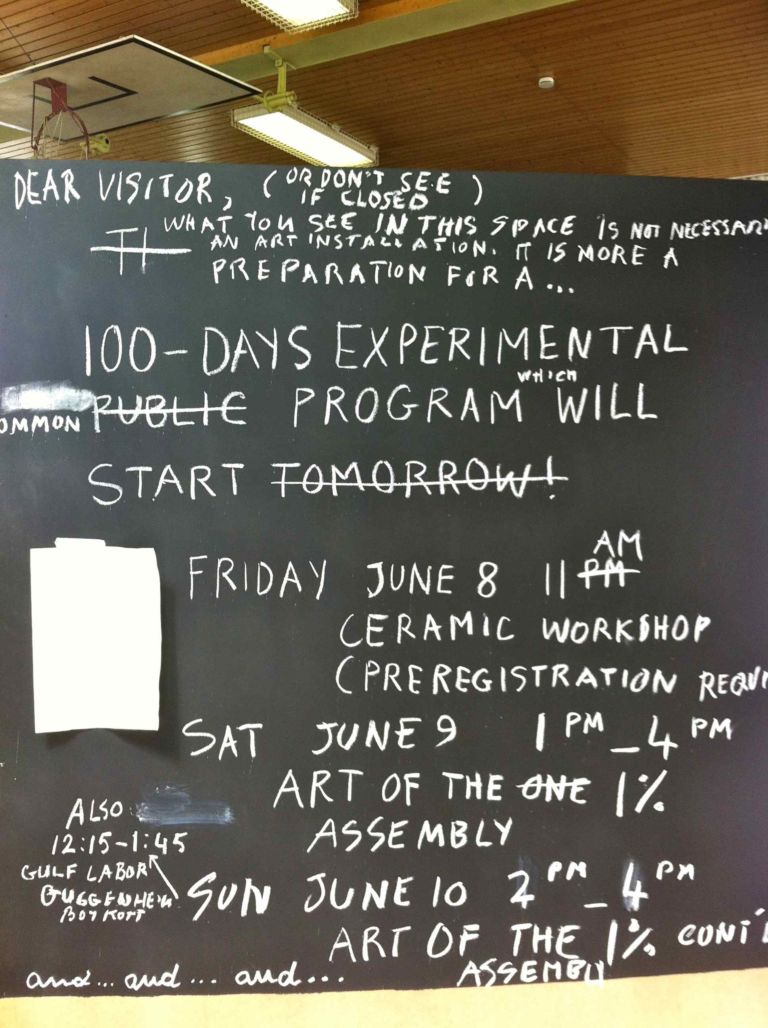 DEAR VISITOR, (OR DON'T SEE IF CLOSED)
WHAT YOU SEE IN THIS SPACE IS NOT NECESSAR
AN ART INSTALLATION. IT IS MORE A
PREPARATION FOR A ...
100-DAYS EXPERIMENTAL
OMMON PUBLIC PROGRAM WHICH WILL
START TOMORROW!
FRIDAY JUNE 8 11 PM AM
CERAMIC WORKSHOP
(PREREGISTRATION REQUI
SAT JUNE 9 1 PM _ 4 PM
ART OF THE ONE 1%
ASSEMBLY
ALSO
12:15-1:45
GULF LABOR
GUGGENHEIM
BOYKOTT
SUN JUNE 10 2 PM _ 4 PM
ART OF THE 1% CONT'D
ASSEMBLY
and... and... and...